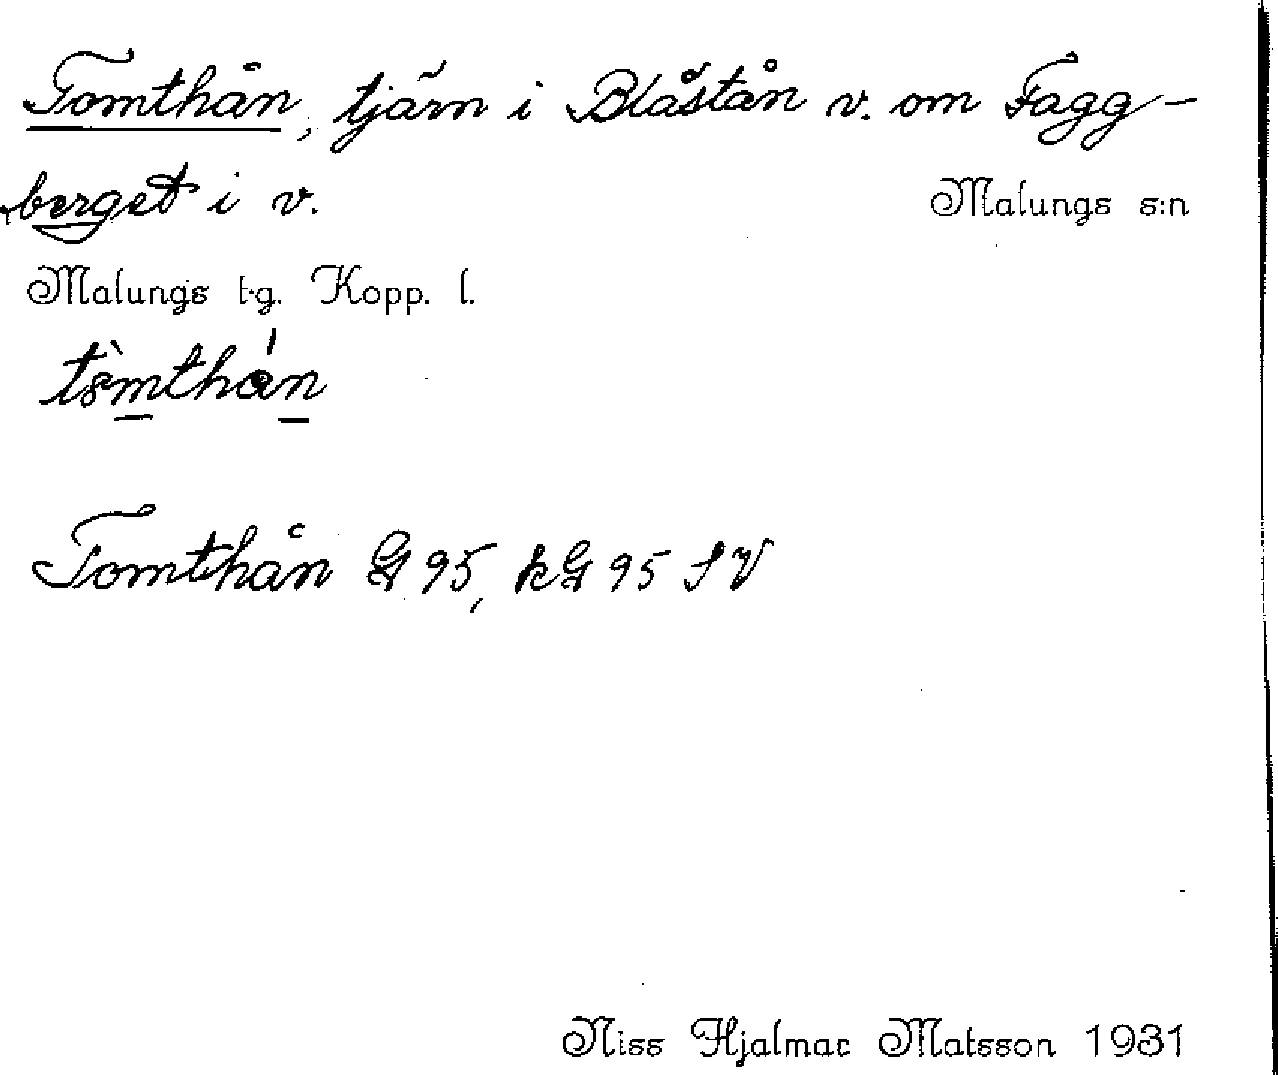 Tomthån, tjärn i Blåstån v. om Fagg-
berget i v.
Malungs s:n
Malungs t.g. Kopp. l.
Tomthån G 95, kG 95 SV
Niss Hjalmar Matsson 1931